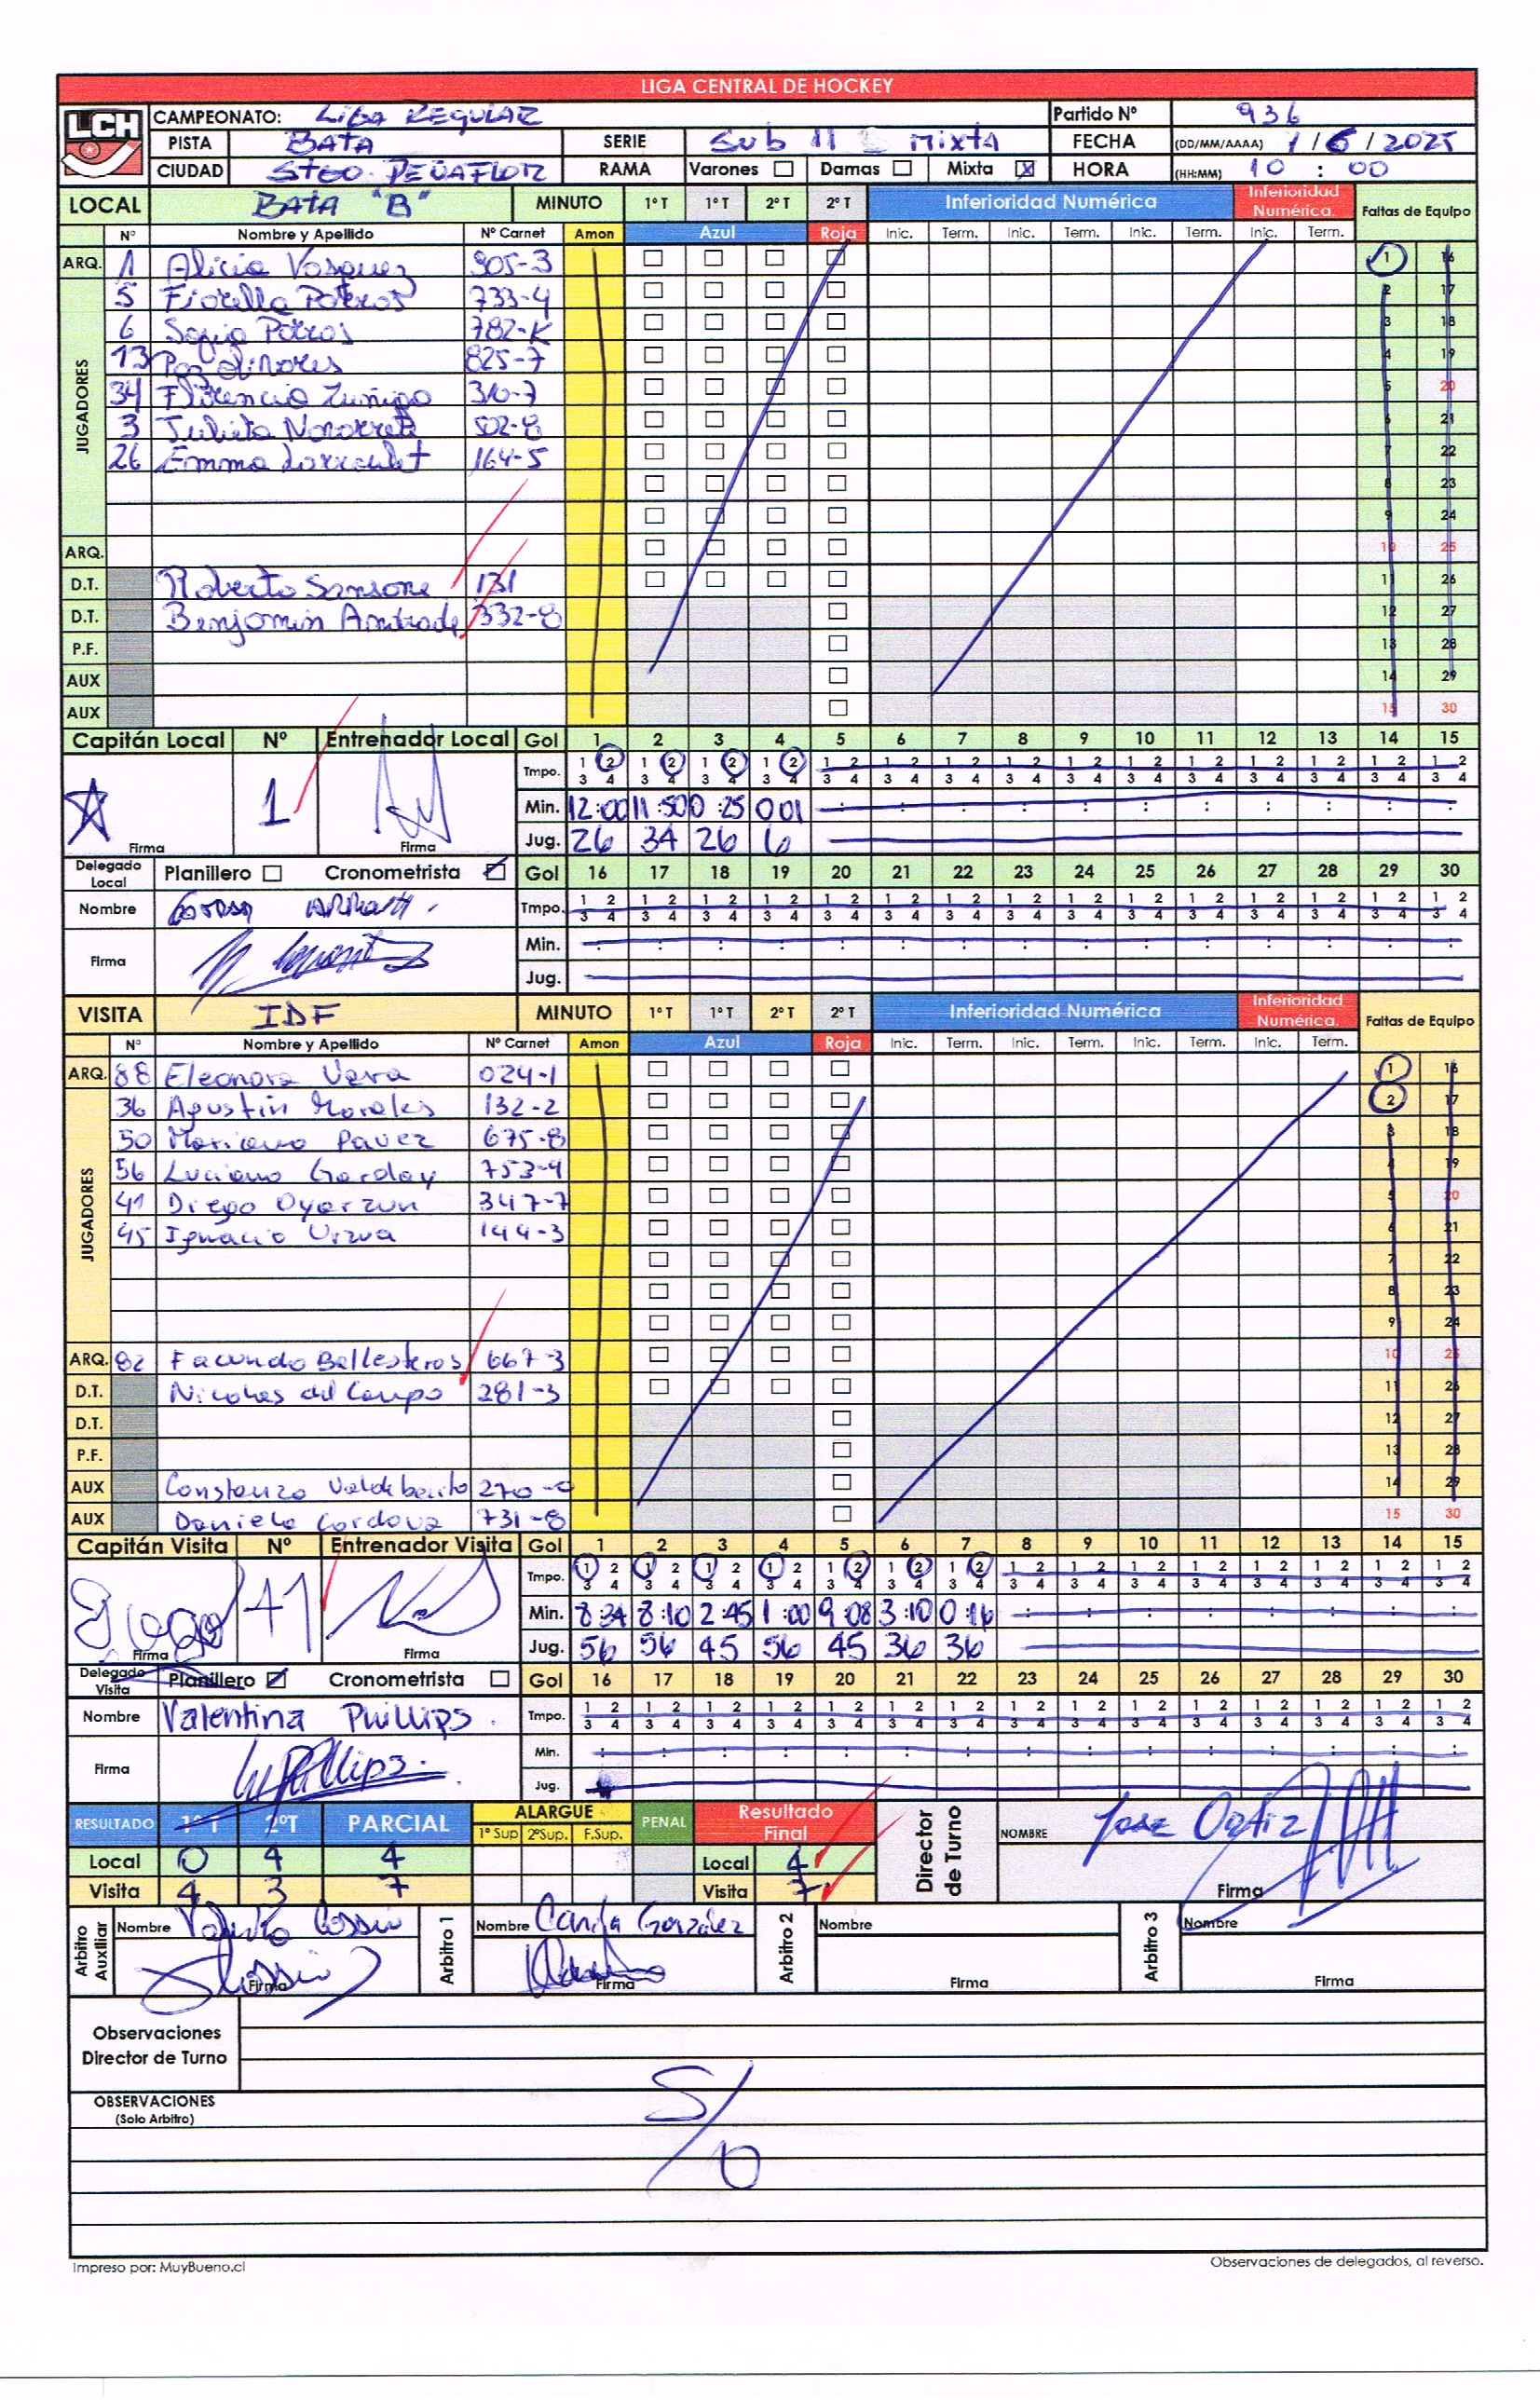 LIGA CENTRAL DE HOCKEY
LCH
CAMPEONATO: LIGA REGULAR Partido Nº 936
PISTA BATA SERIE Sub 11 Mixta FECHA (DD/MM/AAAA) 1/6/2025
CIUDAD STGO. PEÑAFLOR RAMA Varones Damas Mixta X HORA (HH:MM) 10:00
LOCAL BATA "B" MINUTO 1º T 1º T 2º T 2º T Inferioridad Numérica Inferioridad Numérica. Faltas de Equipo
Nº Nombre y Apellido Nº Carnet Amon Azul Roja Inic. Term. Inic. Term. Inic. Term. Inic. Term.
ARQ. 1 Alicia Vasquez 905-3 1 16
JUGADORES
5 Fiorella Potros 733-4 2 17
6 Sofia Potros 782-K 3 18
13 Paz 825-7 4 19
34 Florencia Zuñiga 310-7 5 20
3 Julieta Navarrete 502-8 6 21
26 Emma Larroulet 164-5 7 22
8 23
9 24
ARQ. 10 25
D.T. Roberto Sansone 131 11 26
D.T. Benjamin Andrade 332-8 12 27
P.F. 13 28
AUX 14 29
AUX 15 30
Capitán Local Nº Entrenador Local Gol 1 2 3 4 5 6 7 8 9 10 11 12 13 14 15
Tmpo. 1 2 1 2 1 2 1 2 1 2 1 2 1 2 1 2 1 2 1 2 1 2 1 2 1 2 1 2 1 2
3 4 3 4 3 4 3 4 3 4 3 4 3 4 3 4 3 4 3 4 3 4 3 4 3 4 3 4 3 4
1 Min. 12:00 11:50 0:25 0 01
Firma Firma Jug. 26 34 26 6
Delegado Local Planillero Cronometrista Gol 16 17 18 19 20 21 22 23 24 25 26 27 28 29 30
Nombre Tmpo. 1 2 1 2 1 2 1 2 1 2 1 2 1 2 1 2 1 2 1 2 1 2 1 2 1 2 1 2 1 2
3 4 3 4 3 4 3 4 3 4 3 4 3 4 3 4 3 4 3 4 3 4 3 4 3 4 3 4 3 4
Firma Min.
Jug.
VISITA IDF MINUTO 1º T 1º T 2º T 2º T Inferioridad Numérica Inferioridad Numérica. Faltas de Equipo
Nº Nombre y Apellido Nº Carnet Amon Azul Roja Inic. Term. Inic. Term. Inic. Term. Inic. Term.
ARQ. 88 Eleonora Vera 024-1 1 16
JUGADORES
36 Agustin Morales 132-2 2 17
50 Mariano Pavez 675-8 3 18
56 Luciano Garday 753-4 4 19
41 Diego Oyarzun 347-7 5 20
45 Ignacio Urzua 144-3 6 21
7 22
8 23
9 24
ARQ. 82 Facundo Ballesteros 667-3 10 25
D.T. Nicolas del Campo 281-3 11 26
D.T. 12 27
P.F. 13 28
AUX Constanza Valdebenito 270-0 14 29
AUX Daniela Cordova 731-8 15 30
Capitán Visita Nº Entrenador Visita Gol 1 2 3 4 5 6 7 8 9 10 11 12 13 14 15
Tmpo. 1 2 1 2 1 2 1 2 1 2 1 2 1 2 1 2 1 2 1 2 1 2 1 2 1 2 1 2 1 2
3 4 3 4 3 4 3 4 3 4 3 4 3 4 3 4 3 4 3 4 3 4 3 4 3 4 3 4 3 4
Diego 41 Min. 8:34 8:10 2:45 1:00 9:08 3:10 0:16
Firma Firma Jug. 56 56 45 56 45 36 36
Delegado Visita Planillero Cronometrista Gol 16 17 18 19 20 21 22 23 24 25 26 27 28 29 30
Nombre Valentina Phillips. Tmpo. 1 2 1 2 1 2 1 2 1 2 1 2 1 2 1 2 1 2 1 2 1 2 1 2 1 2 1 2 1 2
3 4 3 4 3 4 3 4 3 4 3 4 3 4 3 4 3 4 3 4 3 4 3 4 3 4 3 4 3 4
Firma Min.
Jug.
RESULTADO 1ºT 2ºT PARCIAL ALARGUE PENAL Resultado Final Director de Turno NOMBRE Jose Ortiz
1º Sup 2ºSup. F.Sup.
Local 0 4 4 Local 4
Visita 4 3 7 Visita 7 Firma
Arbitro Auxiliar Nombre Cossio Arbitro 1 Nombre Camila González Arbitro 2 Nombre Arbitro 3 Nombre
Firma Firma Firma Firma
Observaciones
Director de Turno
OBSERVACIONES
(Solo Arbitro)
S/O
Impreso por: MuyBueno.cl Observaciones de delegados, al reverso.